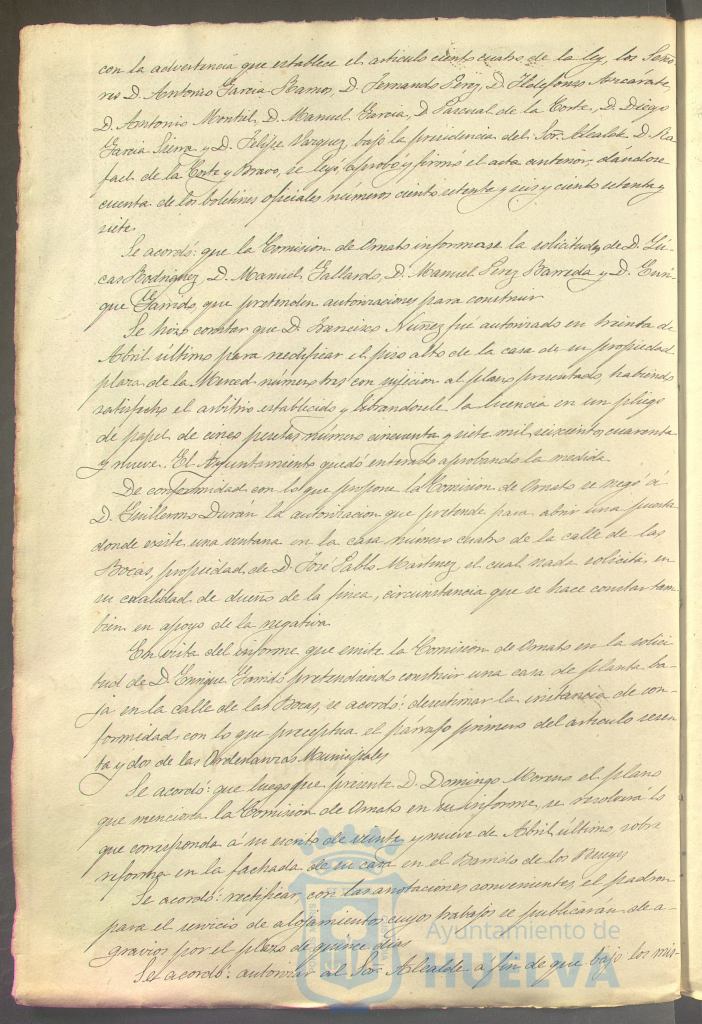 con la advertencia que establece el articulo ciento cuatro de la ley, los Seño-
res D. Antonio Garcia Ramos, D. Fernando Perez, D. Ildefonso Azcárate,
D. Antonio Montiel, D. Manuel Garcia, D. Pascual de la Corte, D. Diego
Garcia Sierra y D. Felipe Vazquez, bajo la presidencia del Sor. Alcalde D. Ra-
fael de la Corte y Bravo, se leyó, aprobó y firmó el acta anterior, dándose
cuenta de los boletines oficiales números ciento setenta y seis y ciento setenta y
siete.
Se acordó: que la Comision de Ornato informase la solicitudes de D. Lú-
cas Rodriguez, D. Manuel Gallardo, D. Manuel Perez Barreda y D. Enri-
que Garrido, que pretenden autorizaciones para construir
Se hizo constar que D. Francisco Nuñez fué autorizado en treinta de
Abril último para reedificar el piso alto de la casa de su propiedad
plaza de la Merced número tres con sujecion al plano presentado, habiendo
satisfecho el arbitrio establecido y librandosele la licencia en un pliego
de papel de cinco pesetas número cincuenta y siete mil seiscientos cuarenta
y nueve. El Ayuntamiento quedó enterado aprobando la medida
De conformidad con lo que propone la Comision de Ornato se negó á
D. Guillermo Durán la autorizacion que pretende para abrir una puerta
donde existe una ventana en la casa número cuatro de la calle de las
Bocas, propiedad de D. José Pablo Martinez, el cual nada solicita en
su calidad de dueño de la finca, circunstancia que se hace constar tam-
bien en apoyo de la negativa
En vista del informe que emite la Comision de Ornato en la solici-
tud de D. Enrique Garrido pretendiendo construir una casa de planta ba-
ja en la calle de las Bocas, se acordó: desestimar la instancia de con-
formidad con lo que preceptua el parrafo primero del articulo sesen-
ta y dos de las Ordenanzas Municipales
Se acordó: que luego que presente D. Domingo Moreno el plano
que menciona la Comision de Ornato en su informe, se resolverá lo
que corresponda á su escrito de veinte y nueve de Abril último sobre
reforma en la fachada de su casa en el Barrido de los
Se acordó: rectificar con las anotaciones convenientes el padron
para el servicio de alojamientos cuyos trabajos se publicarán de a-
gravios por el plazo de quince dias
Se acordó: autorizar al Sor. Alcalde a fin de que bajo los mis-
Ayuntamiento de
HUELVA